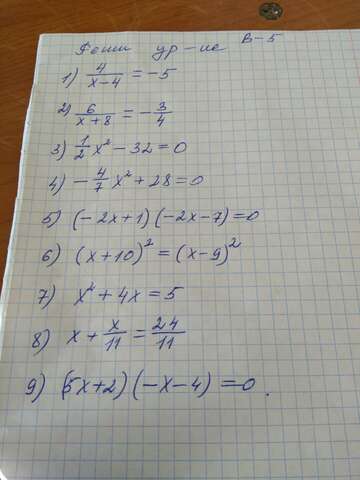 Реши ур-ие В-5
1) 4/(x-4) = -5
2) 6/(x+8) = -3/4
3) 1/2 x² - 32 = 0
4) -4/7 x² + 28 = 0
5) (-2x+1)(-2x-7) = 0
6) (x+10)² = (x-9)²
7) x² + 4x = 5
8) x + x/11 = 24/11
9) (5x+2)(-x-4) = 0.